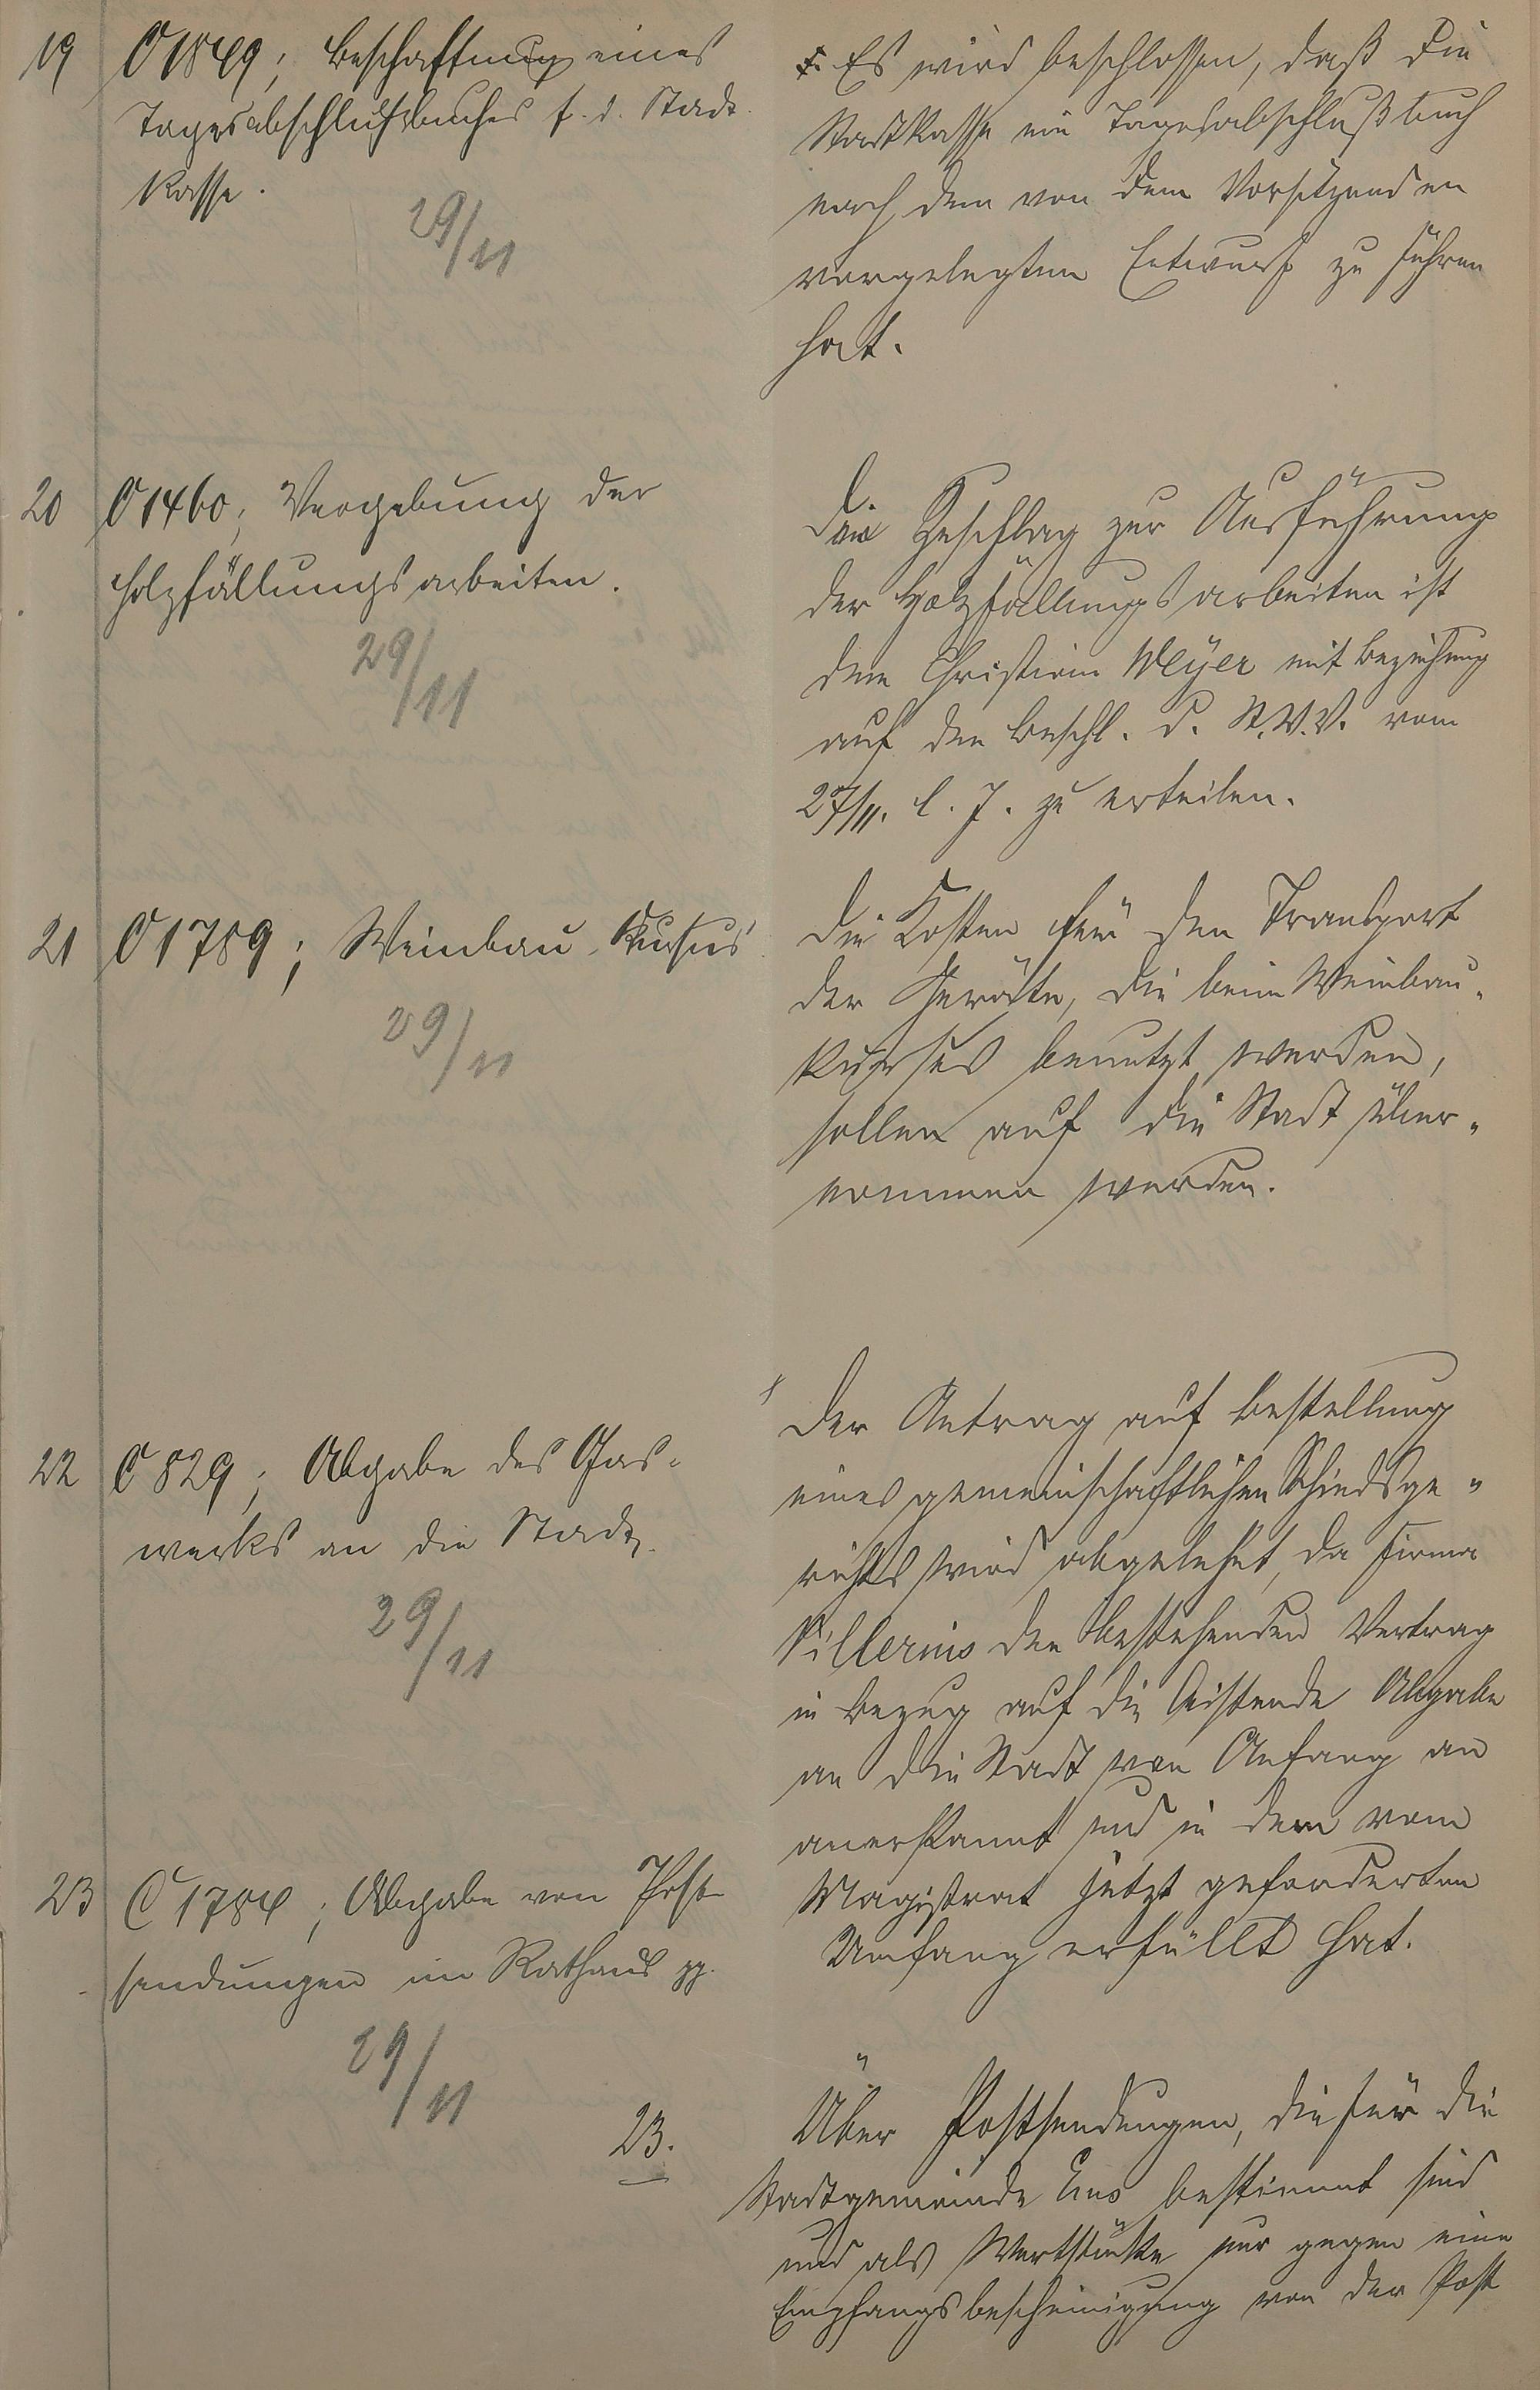 19 C 1849; Beschaffung eines
Tagesabschlußbuches f. d. Stadt
kasse.
29/11
Es wird beschlossen, daß die
Stadtkasse ein Tagesabschlußbuch
nach dem von dem Vorsitzenden
vorgelegten Entwurf zu führen
hat.
20 C 1460; Vergebung der
Holzfällungsarbeiten.
29/11
Zuschlag zur Ausführung
der Holzfällungsarbeiten ist
dem Christian Meyer mit Beziehung
auf den Beschl. d. St.V.V. vom
27/11. l. J. zu erteilen.
21 C 1789; Weinbau-Kursus
29/11
Die Kosten für den Transport
der Geräte, die beim Weinbau-
kursus benutzt werden,
sollen auf die Stadt über-
nommen werden.
22 C 829; Abgabe des Gas-
werks an die Stadt.
29/11
Der Antrag auf Bestellung
eines gemeinschaftlichen Schiedsge-
richts wird abgelehnt, da Firma
den bestehenden Vertrag
in Bezug auf die Abgabe
an die Stadt von Anfang an
anerkannt und in dem vom
Magistrat jetzt geforderten
Umfang erfüllt hat.
23 C 1784; Abgabe von Post-
sendungen im Rathaus pp.
29/11
23.
Über Postsendungen, die für die
Stadtgemeinde Ems bestimmt sind
und als Wertstücke nur gegen eine
Empfangsbescheinigung von der Post